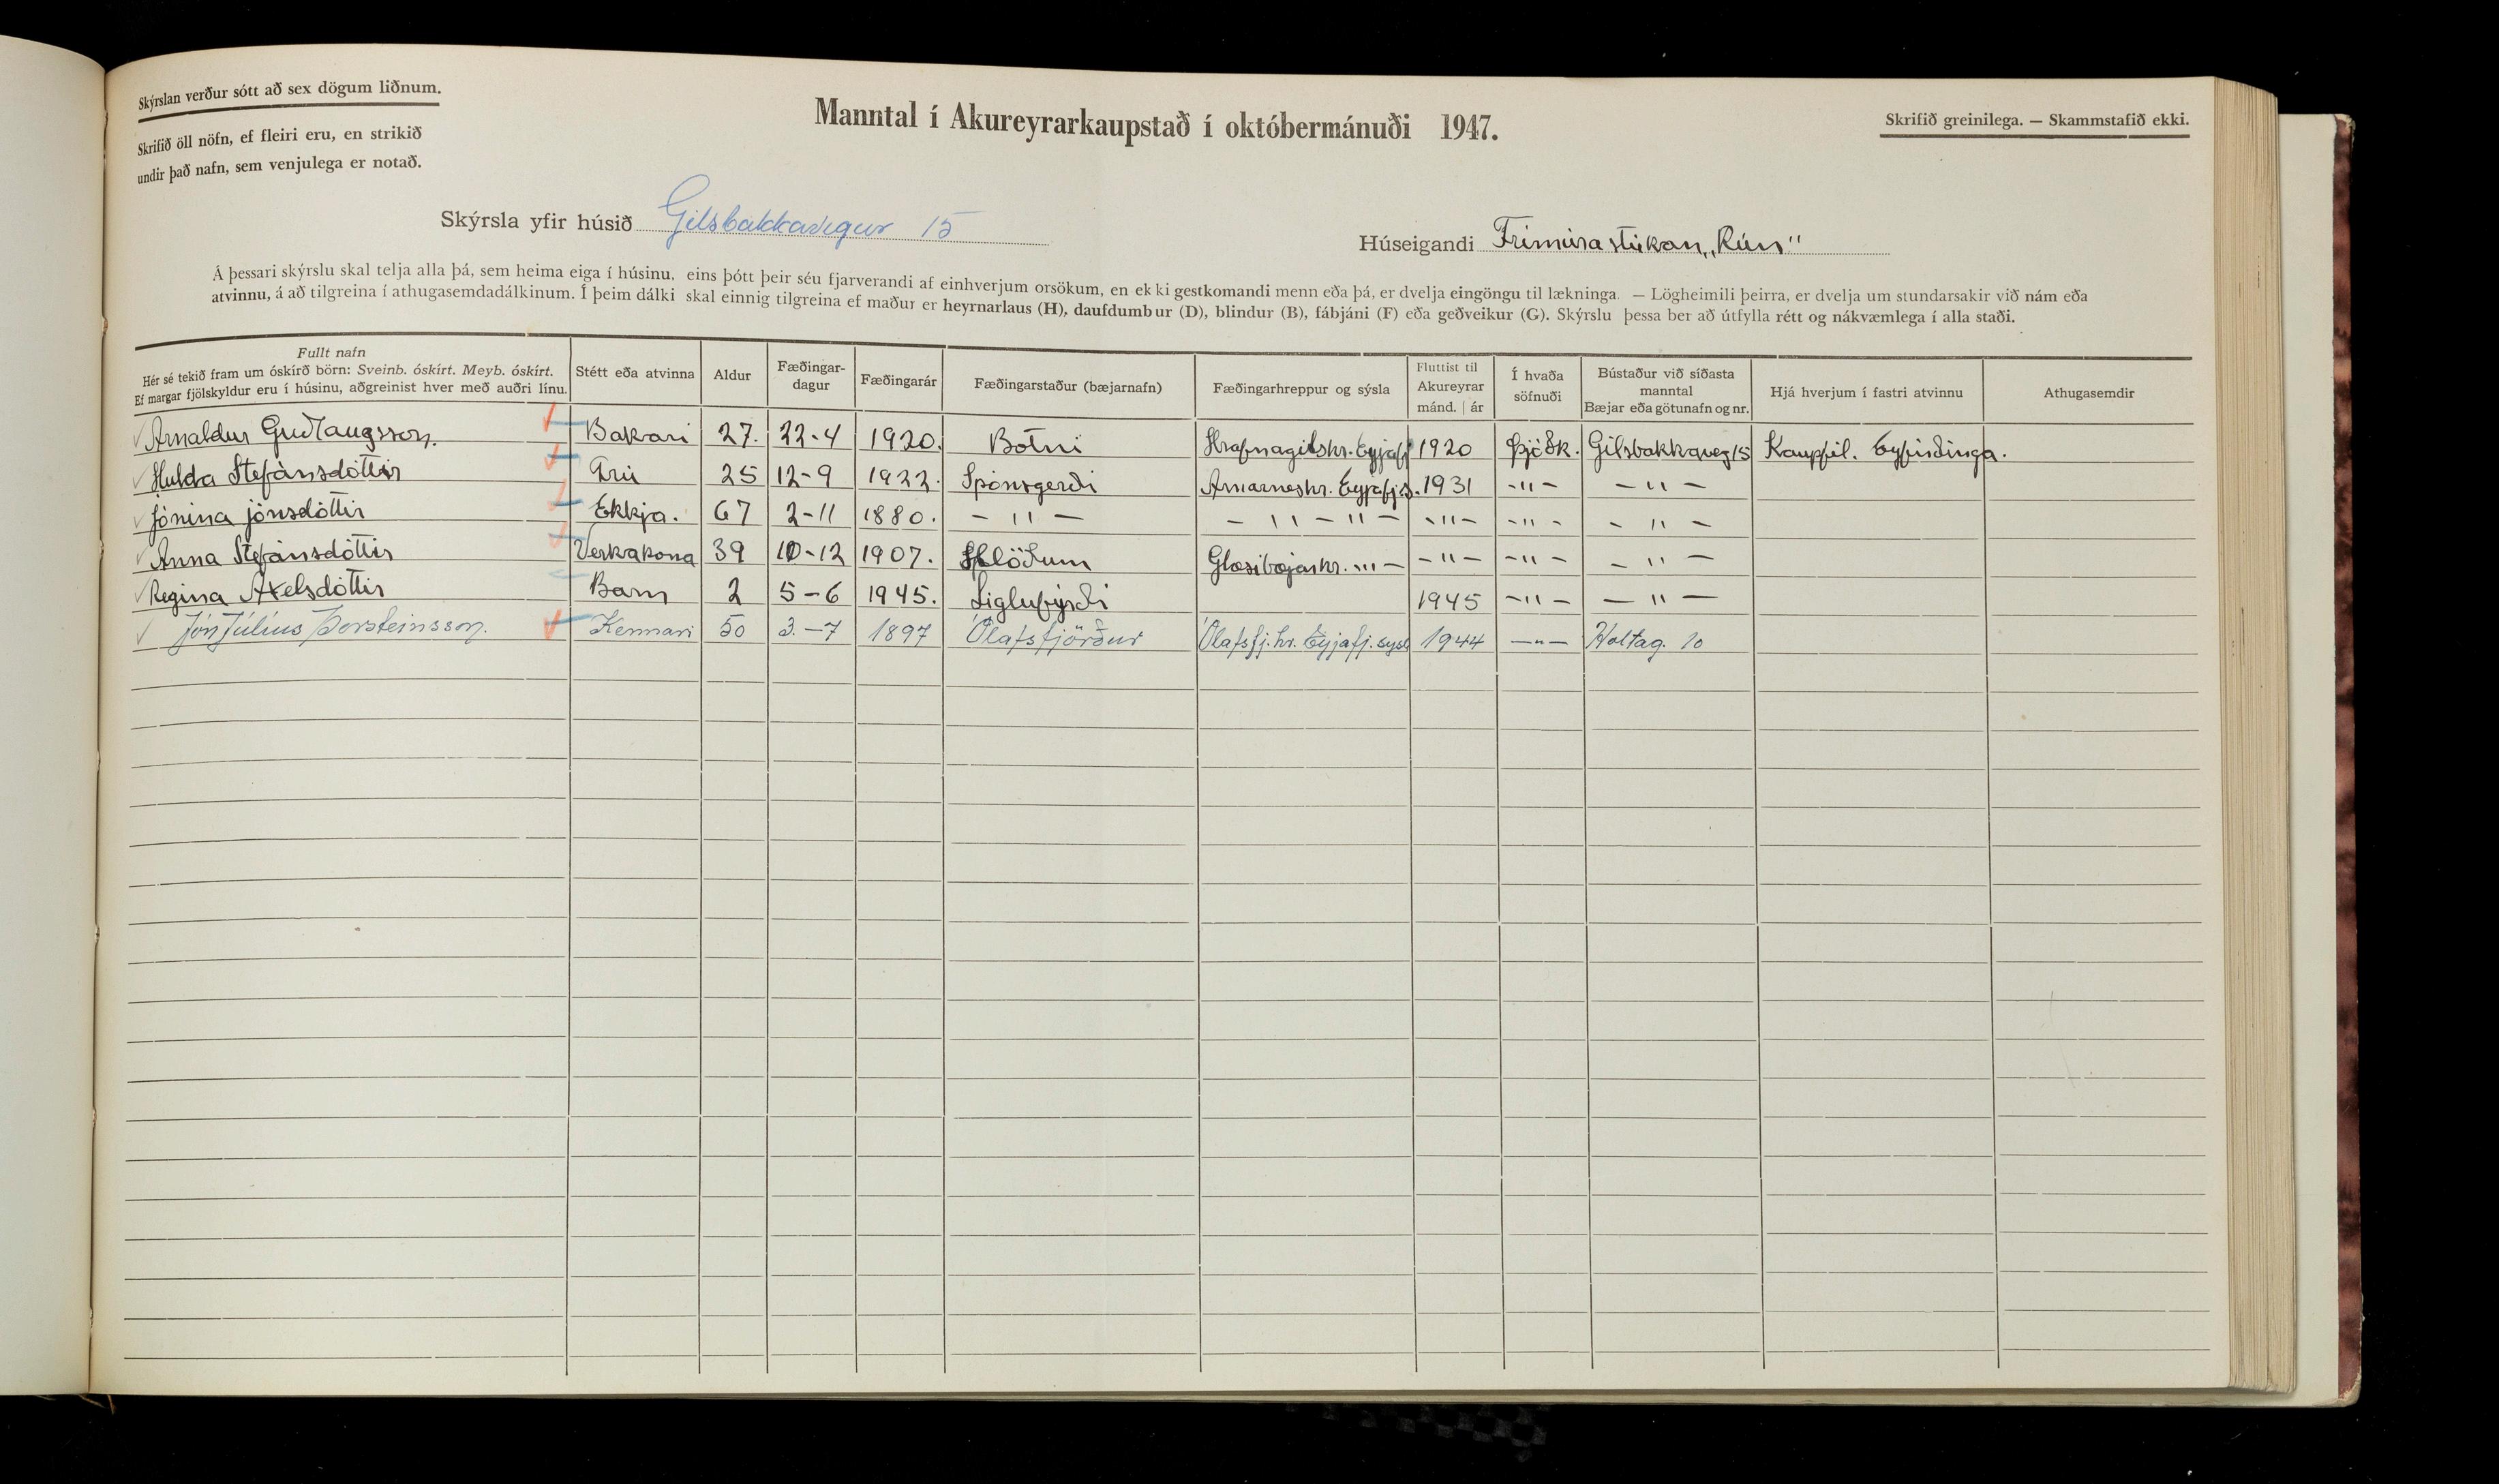 Skýrslan verður sótt að sex dögum liðnum.
Skrifið öll nöfn, ef fleiri eru, en strikið
undir það nafn, sem venjulega er notað.
Manntal í Akureyrarkaupstað í októbermánuði 1947.
Skrifið greinilega. — Skammstafið ekki.
Skýrsla yfir húsið Gilsbakkavegur 15
Húseigandi Frímúrastúkan „Rún"
Á þessari skýrslu skal telja alla þá, sem heima eiga í húsinu, eins þótt þeir séu fjarverandi af einhverjum orsökum, en ekki gestkomandi menn eða þá, er dvelja eingöngu til lækninga. — Lögheimili þeirra, er dvelja um stundarsakir við nám eða
atvinnu, á að tilgreina í athugasemdadálkinum. Í þeim dálki skal einnig tilgreina ef maður er heyrnarlaus (H), daufdumbur (D), blindur (B), fábjáni (F) eða geðveikur (G). Skýrslu þessa ber að útfylla rétt og nákvæmlega í alla staði.
Fullt nafn
Hér sé tekið fram um óskírð börn: Sveinb. óskírt. Meyb. óskírt.
Ef margar fjölskyldur eru í húsinu, aðgreinist hver með auðri línu.
Stétt eða atvinna
Aldur
Fæðingar-
dagur
Fæðingarár
Fæðingarstaður (bæjarnafn)
Fæðingarhreppur og sýsla
Fluttist til
Akureyrar
mánd. | ár
Í hvaða
söfnuði
Bústaður við síðasta
manntal
Bæjar eða götunafn og nr.
Hjá hverjum í fastri atvinnu
Athugasemdir
Arnaldur Guðlaugsson. Bakari 27. 22-4 1920. Botni Hrafnagilshr. Eyjafj 1920 Þjóðk. Gilsbakkaveg 15 Kaupfél. Eyfirðinga.
Hulda Stefánsdóttir Frú 25 12-9 1922. Spónsgerði Arnarneshr. Eyjafj.s. 1931 -"- -"-
Jónína Jónsdóttir Ekkja. 67 2-11 1880. -"- -"-"- -"- -"- -"-
Anna Stefánsdóttir Verkakona 39 10-12 1907. Hlöðum Glæsibæjarhr. -"- -"- -"- -"-
Regina Axelsdóttir Barn 2 5-6 1945. Siglufirði 1945 -"- -"-
Jón Júlíus Þorsteinsson. Kennari 50 3.-7 1897 Ólafsfjörður Ólafsfj.hr. Eyjafj.sysl 1944 -"- Holtag. 10